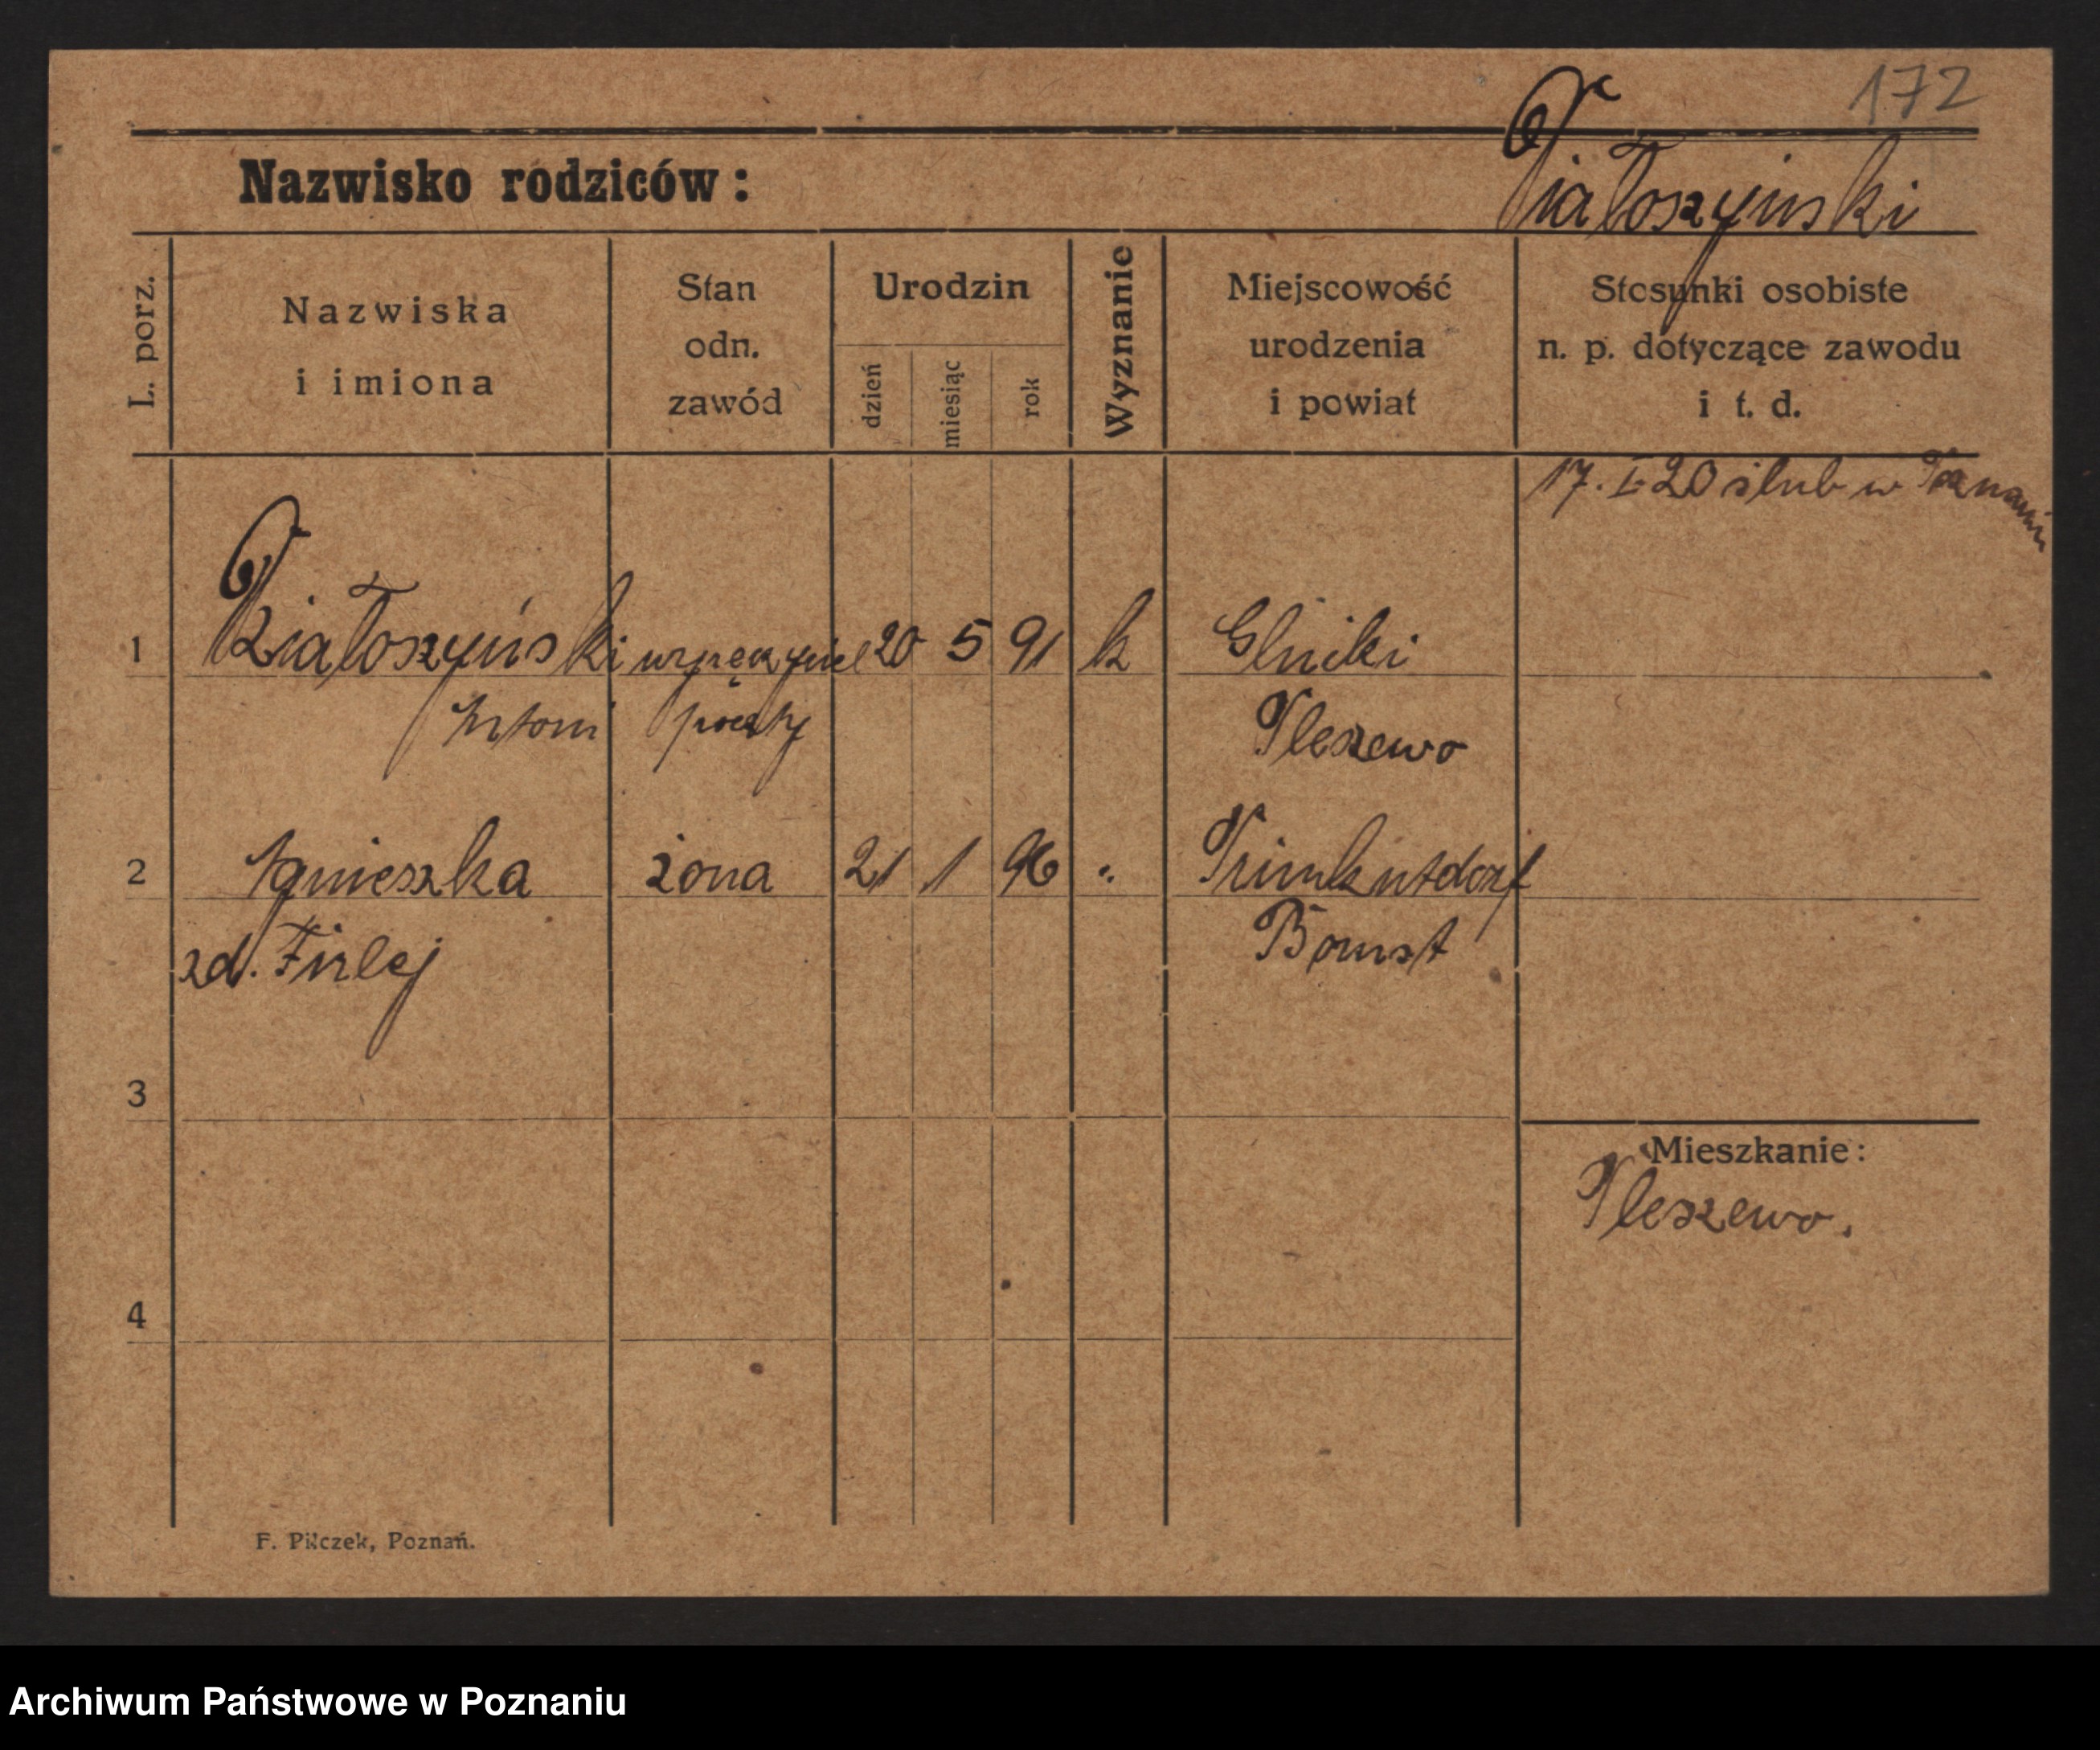 172
Nazwisko rodziców:
Piałoszyński
L. porz.
Nazwiska
i imiona
Stan
odn.
zawód
Urodzin
dzień
miesiąc
rok
Wyznanie
Miejscowość
urodzenia
i powiat
Stosunki osobiste
n. p. dotyczące zawodu
i t. d.
17. I 20 ślub w Poznaniu
1
20 5 91 k Gliniki
Antoni poczty
Pleszewo
2 Agnieszka żona 21 1 96 "
zd. Firlej
Bomst
3
Mieszkanie:
Pleszewo.
4
F. Pilczek, Poznań.
Archiwum Państwowe w Poznaniu